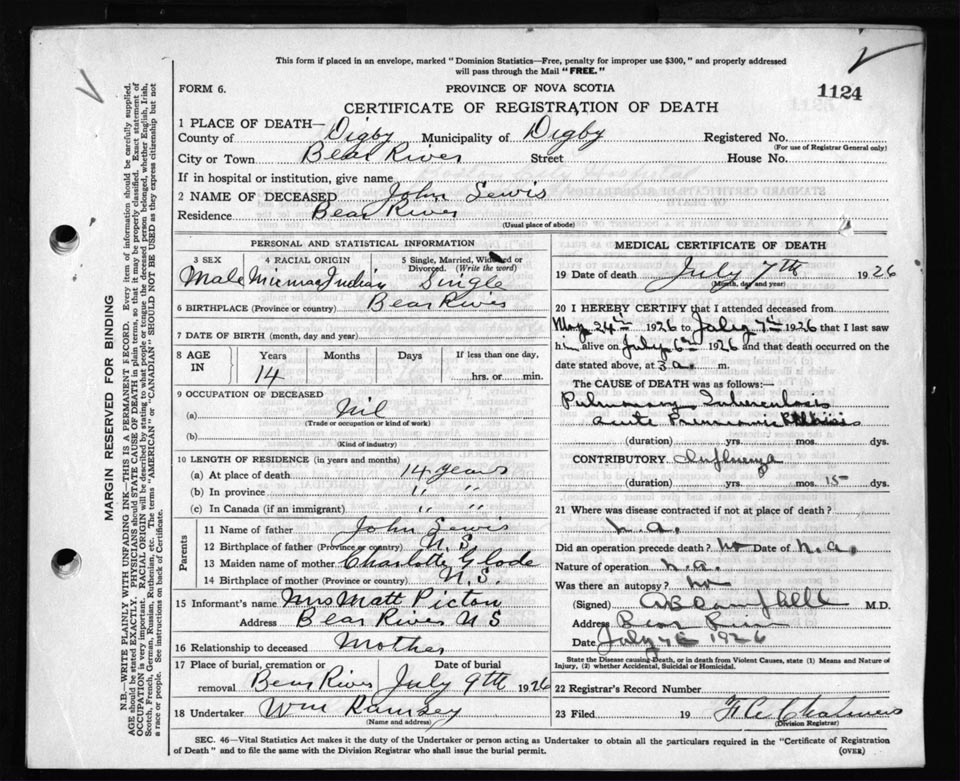 This form if placed in an envelope, marked "Dominion Statistics—Free, penalty for improper use $300," and properly addressed
will pass through the Mail "FREE."
FORM 6.
PROVINCE OF NOVA SCOTIA
1124
CERTIFICATE OF REGISTRATION OF DEATH
1 PLACE OF DEATH—
County of Digby Municipality of Digby Registered No.
(For use of Registrar General only)
City or Town Bear River Street House No.
If in hospital or institution, give name
2 NAME OF DECEASED John Lewis
Residence Bear River
(Usual place of abode)
PERSONAL AND STATISTICAL INFORMATION
3 SEX 4 RACIAL ORIGIN 5 Single, Married, Widowed or Divorced. (Write the word)
Male Micmac Indian Single
6 BIRTHPLACE (Province or country) Bear River
7 DATE OF BIRTH (month, day and year)
8 AGE IN Years Months Days If less than one day,
14 hrs. or min.
9 OCCUPATION OF DECEASED
(a) Nil
(Trade or occupation or kind of work)
(b)
(Kind of industry)
10 LENGTH OF RESIDENCE (in years and months)
(a) At place of death 14 years
(b) In province " "
(c) In Canada (if an immigrant) " "
Parents
11 Name of father John Lewis
12 Birthplace of father (Province or country) N.S.
13 Maiden name of mother Charlotte Glode
14 Birthplace of mother (Province or country) N.S.
15 Informant's name Mrs Matt Picton
Address Bear River NS
16 Relationship to deceased Mother
17 Place of burial, cremation or removal Date of burial
Bear River July 9th 1926
18 Undertaker Wm Ramsey
(Name and address)
MEDICAL CERTIFICATE OF DEATH
19 Date of death July 7th 1926
(Month, day and year)
20 I HEREBY CERTIFY that I attended deceased from
May 24th 1926 to July 7th 1926 that I last saw
him alive on July 6th 1926 and that death occurred on the
date stated above, at 3 a. m.
The CAUSE OF DEATH was as follows:—
Pulmonary Tuberculosis
acute Pneumonic Phthisis
(duration) yrs. mos. dys.
CONTRIBUTORY Influenza
(duration) yrs. mos. 15 dys.
21 Where was disease contracted if not at place of death?
n.a.
Did an operation precede death? no Date of n.a.
Nature of operation n.a.
Was there an autopsy? no
(Signed) Campbell M.D.
Address Bear River
Date July 1926
State the Disease causing Death, or in death from Violent Causes, state (1) Means and Nature of
Injury, (2) whether Accidental, Suicidal or Homicidal.
22 Registrar's Record Number
23 Filed 19 Chalmers
(Division Registrar)
SEC. 46—Vital Statistics Act makes it the duty of the Undertaker or person acting as Undertaker to obtain all the particulars required in the "Certificate of Registration
of Death" and to file the same with the Division Registrar who shall issue the burial permit.
(OVER)
MARGIN RESERVED FOR BINDING
N.B.—WRITE PLAINLY, WITH UNFADING INK—THIS IS A PERMANENT RECORD. Every item of information should be carefully supplied.
AGE should be stated EXACTLY. PHYSICIANS should STATE CAUSE OF DEATH in plain terms, so that it may be properly classified. Exact statement of
OCCUPATION is very important. RACIAL ORIGIN will be described by stating to what people or tongue the deceased person belonged, whether English, Irish,
Scotch, French, German, Russian, Ruthenian, etc. The terms "AMERICAN" or "CANADIAN" SHOULD NOT BE USED as they express citizenship but not
a race or people. See instructions on back of Certificate.